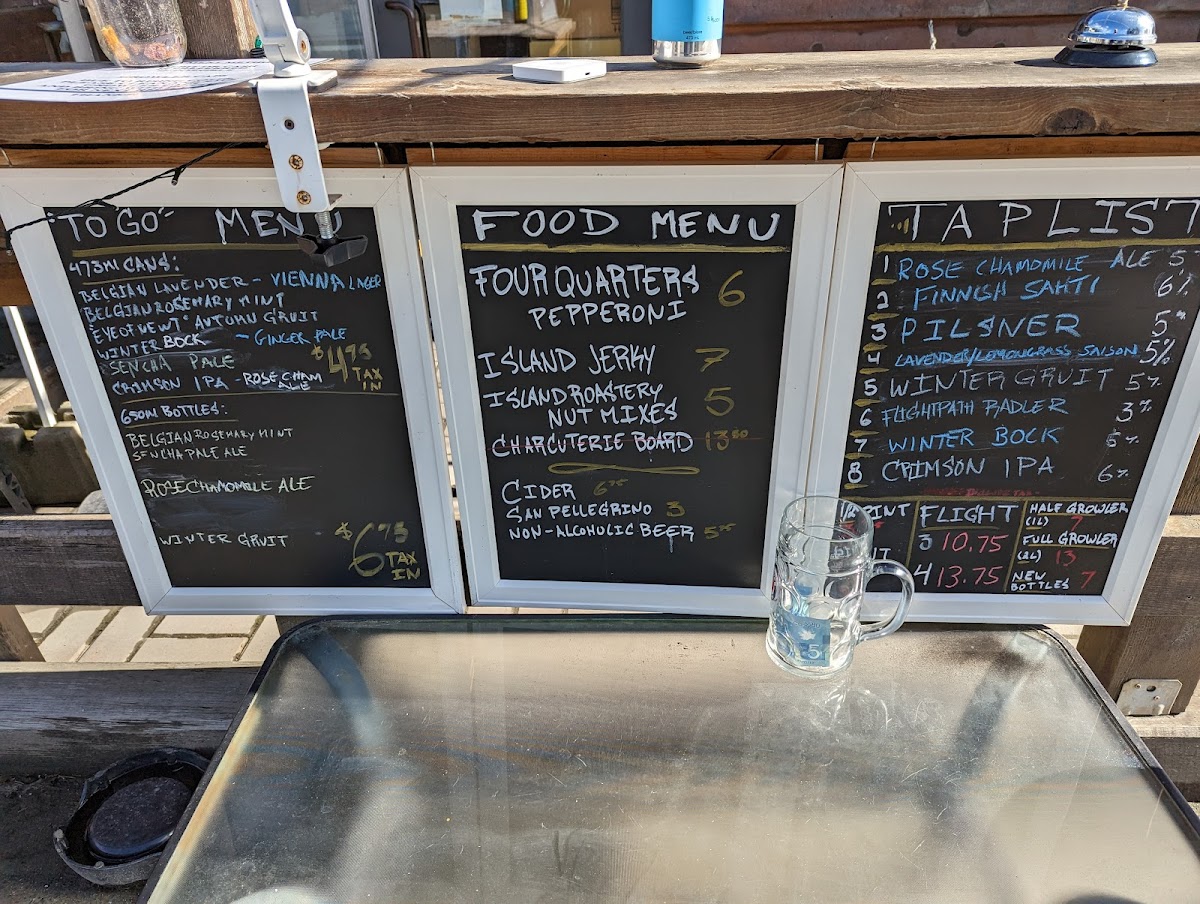 "TO GO" MENU
473ml CANS:
BELGIAN LAVENDER - VIENNA LAGER
BELGIAN ROSEMARY MINT
"EYE OF NEWT" AUTUMN GRUIT
WINTER BOCK - GINGER PALE
SENCHA PALE
CRIMSON IPA - ROSE CHAM ALE
$4.75 TAX IN
650ml BOTTLES:
BELGIAN ROSEMARY MINT
SENCHA PALE ALE
ROSE CHAMOMILE ALE
WINTER GRUIT
$6.75 TAX IN
FOOD MENU
FOUR QUARTERS 6
PEPPERONI
ISLAND JERKY 7
ISLAND ROASTERY 5
NUT MIXES
CHARCUTERIE BOARD 13.50
CIDER 6.75
SAN PELLEGRINO 3
NON-ALCOHOLIC BEER 5.75
TAP LIST
1 ROSE CHAMOMILE ALE 5
2 FINNISH SAHTI 6%
3 PILSNER 5%
4 LAVENDER/LEMONGRASS SAISON 5%
5 WINTER GRUIT 5%
6 FLIGHTPATH RADLER 3%
7 WINTER BOCK 5%
8 CRIMSON IPA 6%
FLIGHT
3 10.75
4 13.75
HALF GROWLER
(1L) 7
FULL GROWLER
(2L) 13
NEW BOTTLES 7
5